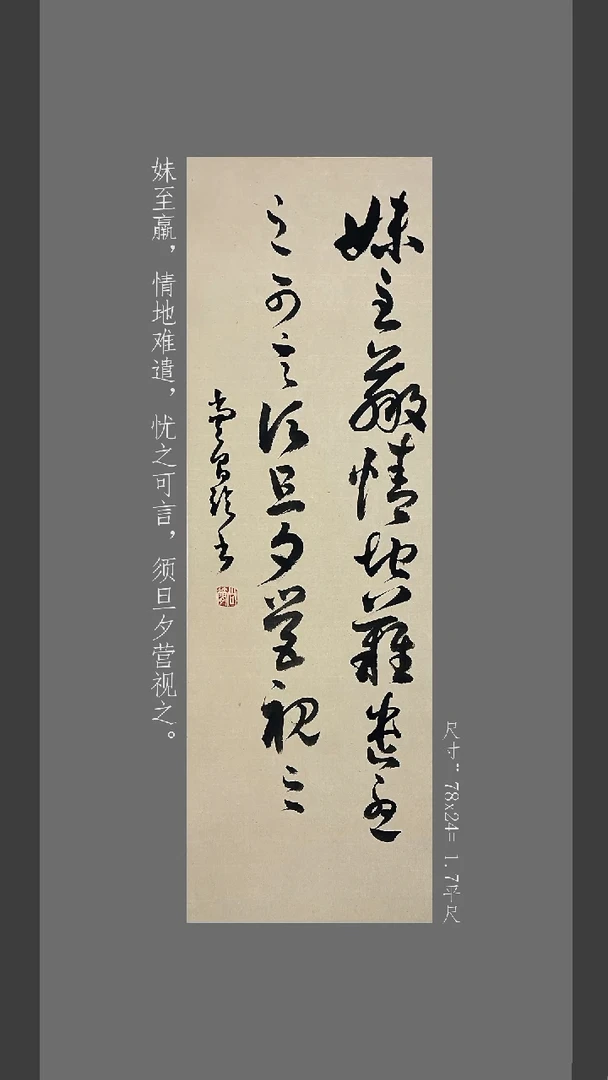 尺寸：78x24= 1.7平尺
妹至羸情地難遣憂
之可言須旦夕營視之
妹至羸，情地难遣，忧之可言，须旦夕营视之。